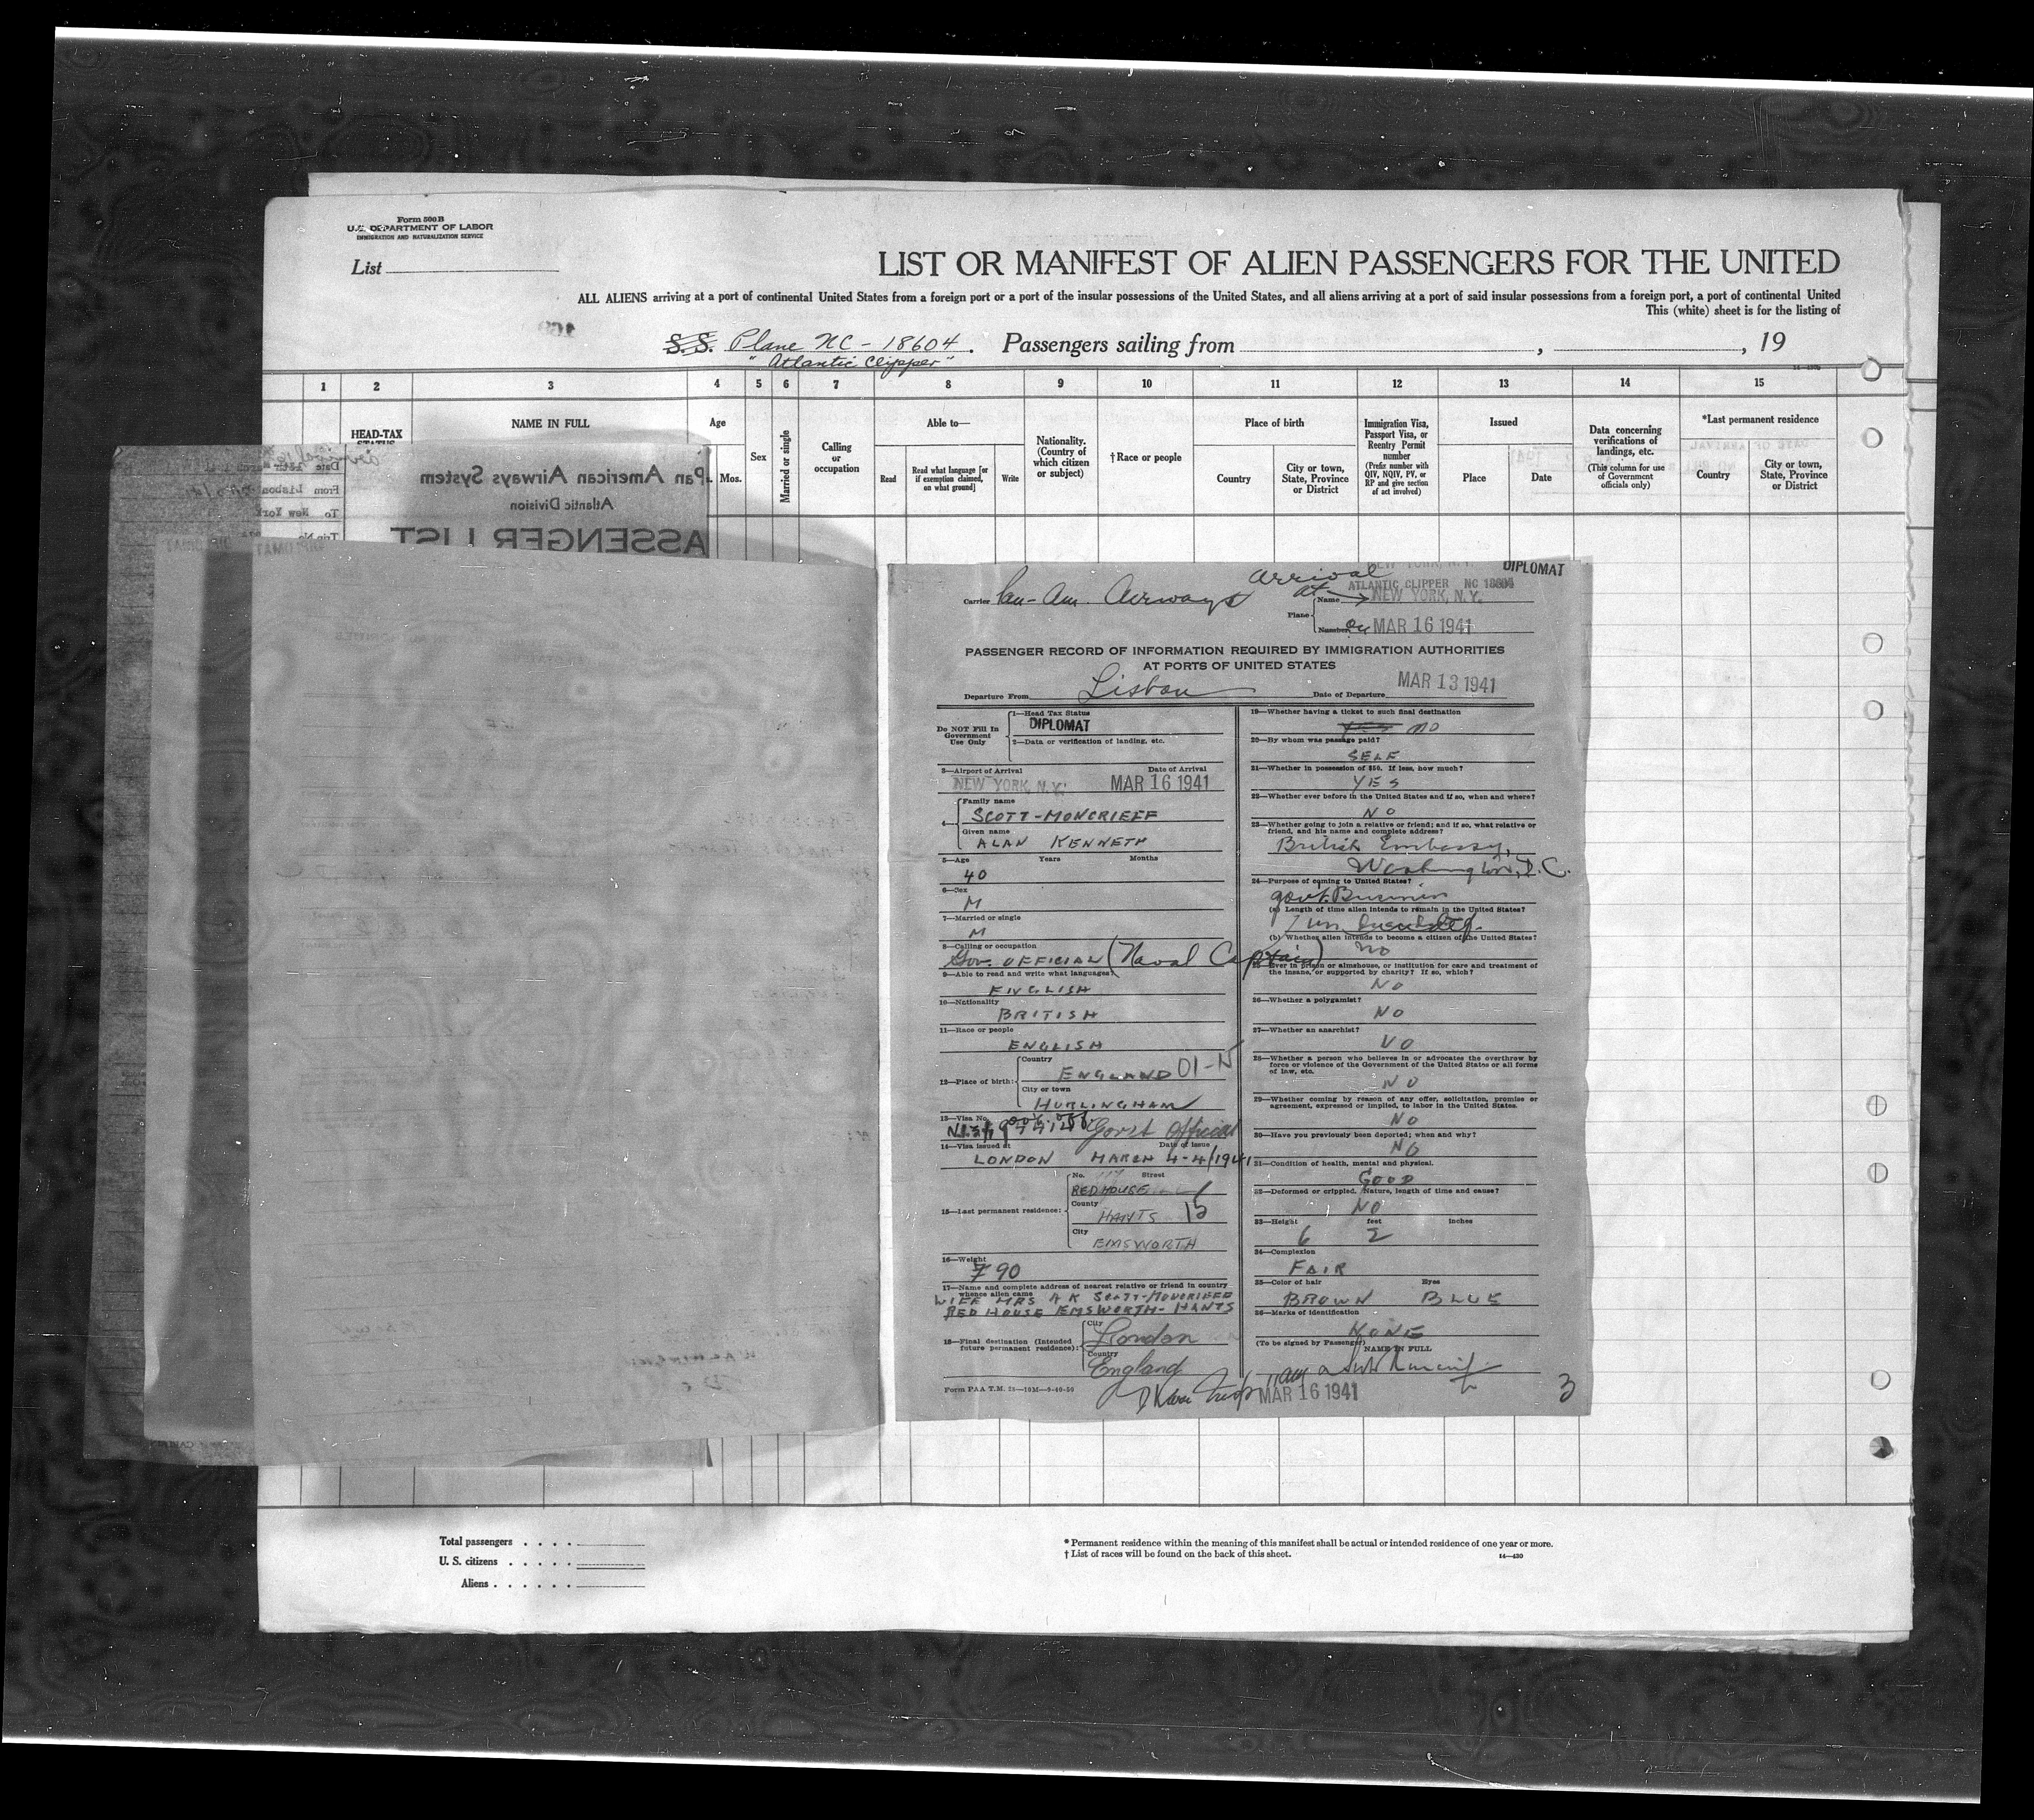 Form 500 B
U.S. DEPARTMENT OF LABOR
IMMIGRATION AND NATURALIZATION SERVICE
List
LIST OR MANIFEST OF ALIEN PASSENGERS FOR THE UNITED
ALL ALIENS arriving at a port of continental United States from a foreign port or a port of the insular possessions of the United States, and all aliens arriving at a port of said insular possessions from a foreign port, a port of continental United
This (white) sheet is for the listing of
S.S. Plane NC-18604. Passengers sailing from , , 19
"Atlantic Clipper"
1 2 3 4 5 6 7 8 9 10 11 12 13 14 15
HEAD-TAX STATUS
NAME IN FULL
Age
Mos.
Sex
Married or single
Calling or occupation
Able to—
Read
Read what language [or if exemption claimed, on what ground]
Write
Nationality. (Country of which citizen or subject)
†Race or people
Place of birth
Country
City or town, State, Province or District
Immigration Visa, Passport Visa, or Reentry Permit number
(Prefix number with QIV, NQIV, PV, or RP and give section of act involved)
Issued
Place
Date
Data concerning verifications of landings, etc.
(This column for use of Government officials only)
*Last permanent residence
Country
City or town, State, Province or District
Pan American Airways System
Atlantic Division
ASSENGER LIST
Date
From Lisbon
To New York
DIPLOMAT
Carrier Pan-Am. Airways
arrival at
ATLANTIC CLIPPER NC 18604
Plane
Name NEW YORK, N.Y.
Number on MAR 16 1941
PASSENGER RECORD OF INFORMATION REQUIRED BY IMMIGRATION AUTHORITIES
AT PORTS OF UNITED STATES
Departure From Lisbon Date of Departure MAR 13 1941
Do NOT Fill In Government Use Only
1—Head Tax Status
DIPLOMAT
2—Data or verification of landing, etc.
3—Airport of Arrival Date of Arrival
NEW YORK, N.Y. MAR 16 1941
4—
Family name
SCOTT-MONCRIEFF
Given name
ALAN KENNETH
5—Age Years Months
40
6—Sex
M
7—Married or single
M
8—Calling or occupation
Gov. OFFICIAL (Naval Captain)
9—Able to read and write what languages
ENGLISH
10—Nationality
BRITISH
11—Race or people
ENGLISH
12—Place of birth:
Country
ENGLAND 01-N
City or town
HURLINGHAM
13—Visa No.
Govt Official
14—Visa issued at Date of issue
LONDON MARCH 4-4/1941
15—Last permanent residence:
No. Street
RED HOUSE
County
HANTS
City
EMSWORTH
16—Weight
90
17—Name and complete address of nearest relative or friend in country whence alien came
WIFE MRS A K SCOTT-MONCRIEFF
RED HOUSE EMSWORTH-HANTS
18—Final destination (Intended future permanent residence):
City
London
Country
England
Form PAA T.M. 28—10M—9-40-50
19—Whether having a ticket to such final destination
YES NO
20—By whom was passage paid?
SELF
21—Whether in possession of $50. If less, how much?
YES
22—Whether ever before in the United States and if so, when and where?
NO
23—Whether going to join a relative or friend; and if so, what relative or friend, and his name and complete address?
British Embassy,
Washington, D.C.
24—Purpose of coming to United States?
Govt. Business
(a) Length of time alien intends to remain in the United States?
(b) Whether alien intends to become a citizen of the United States?
No
25—Ever in prison or almshouse, or institution for care and treatment of the insane, or supported by charity? If so, which?
NO
26—Whether a polygamist?
NO
27—Whether an anarchist?
NO
28—Whether a person who believes in or advocates the overthrow by force or violence of the Government of the United States or all forms of law, etc.
NO
29—Whether coming by reason of any offer, solicitation, promise or agreement, expressed or implied, to labor in the United States.
NO
30—Have you previously been deported; when and why?
NO
31—Condition of health, mental and physical.
GOOD
32—Deformed or crippled. Nature, length of time and cause?
NO
33—Height feet inches
6 2
34—Complexion
FAIR
35—Color of hair Eyes
BROWN BLUE
36—Marks of identification
NONE
(To be signed by Passenger) NAME IN FULL
MAR 16 1941
3
Total passengers
U. S. citizens
Aliens
* Permanent residence within the meaning of this manifest shall be actual or intended residence of one year or more.
† List of races will be found on the back of this sheet.
14—430